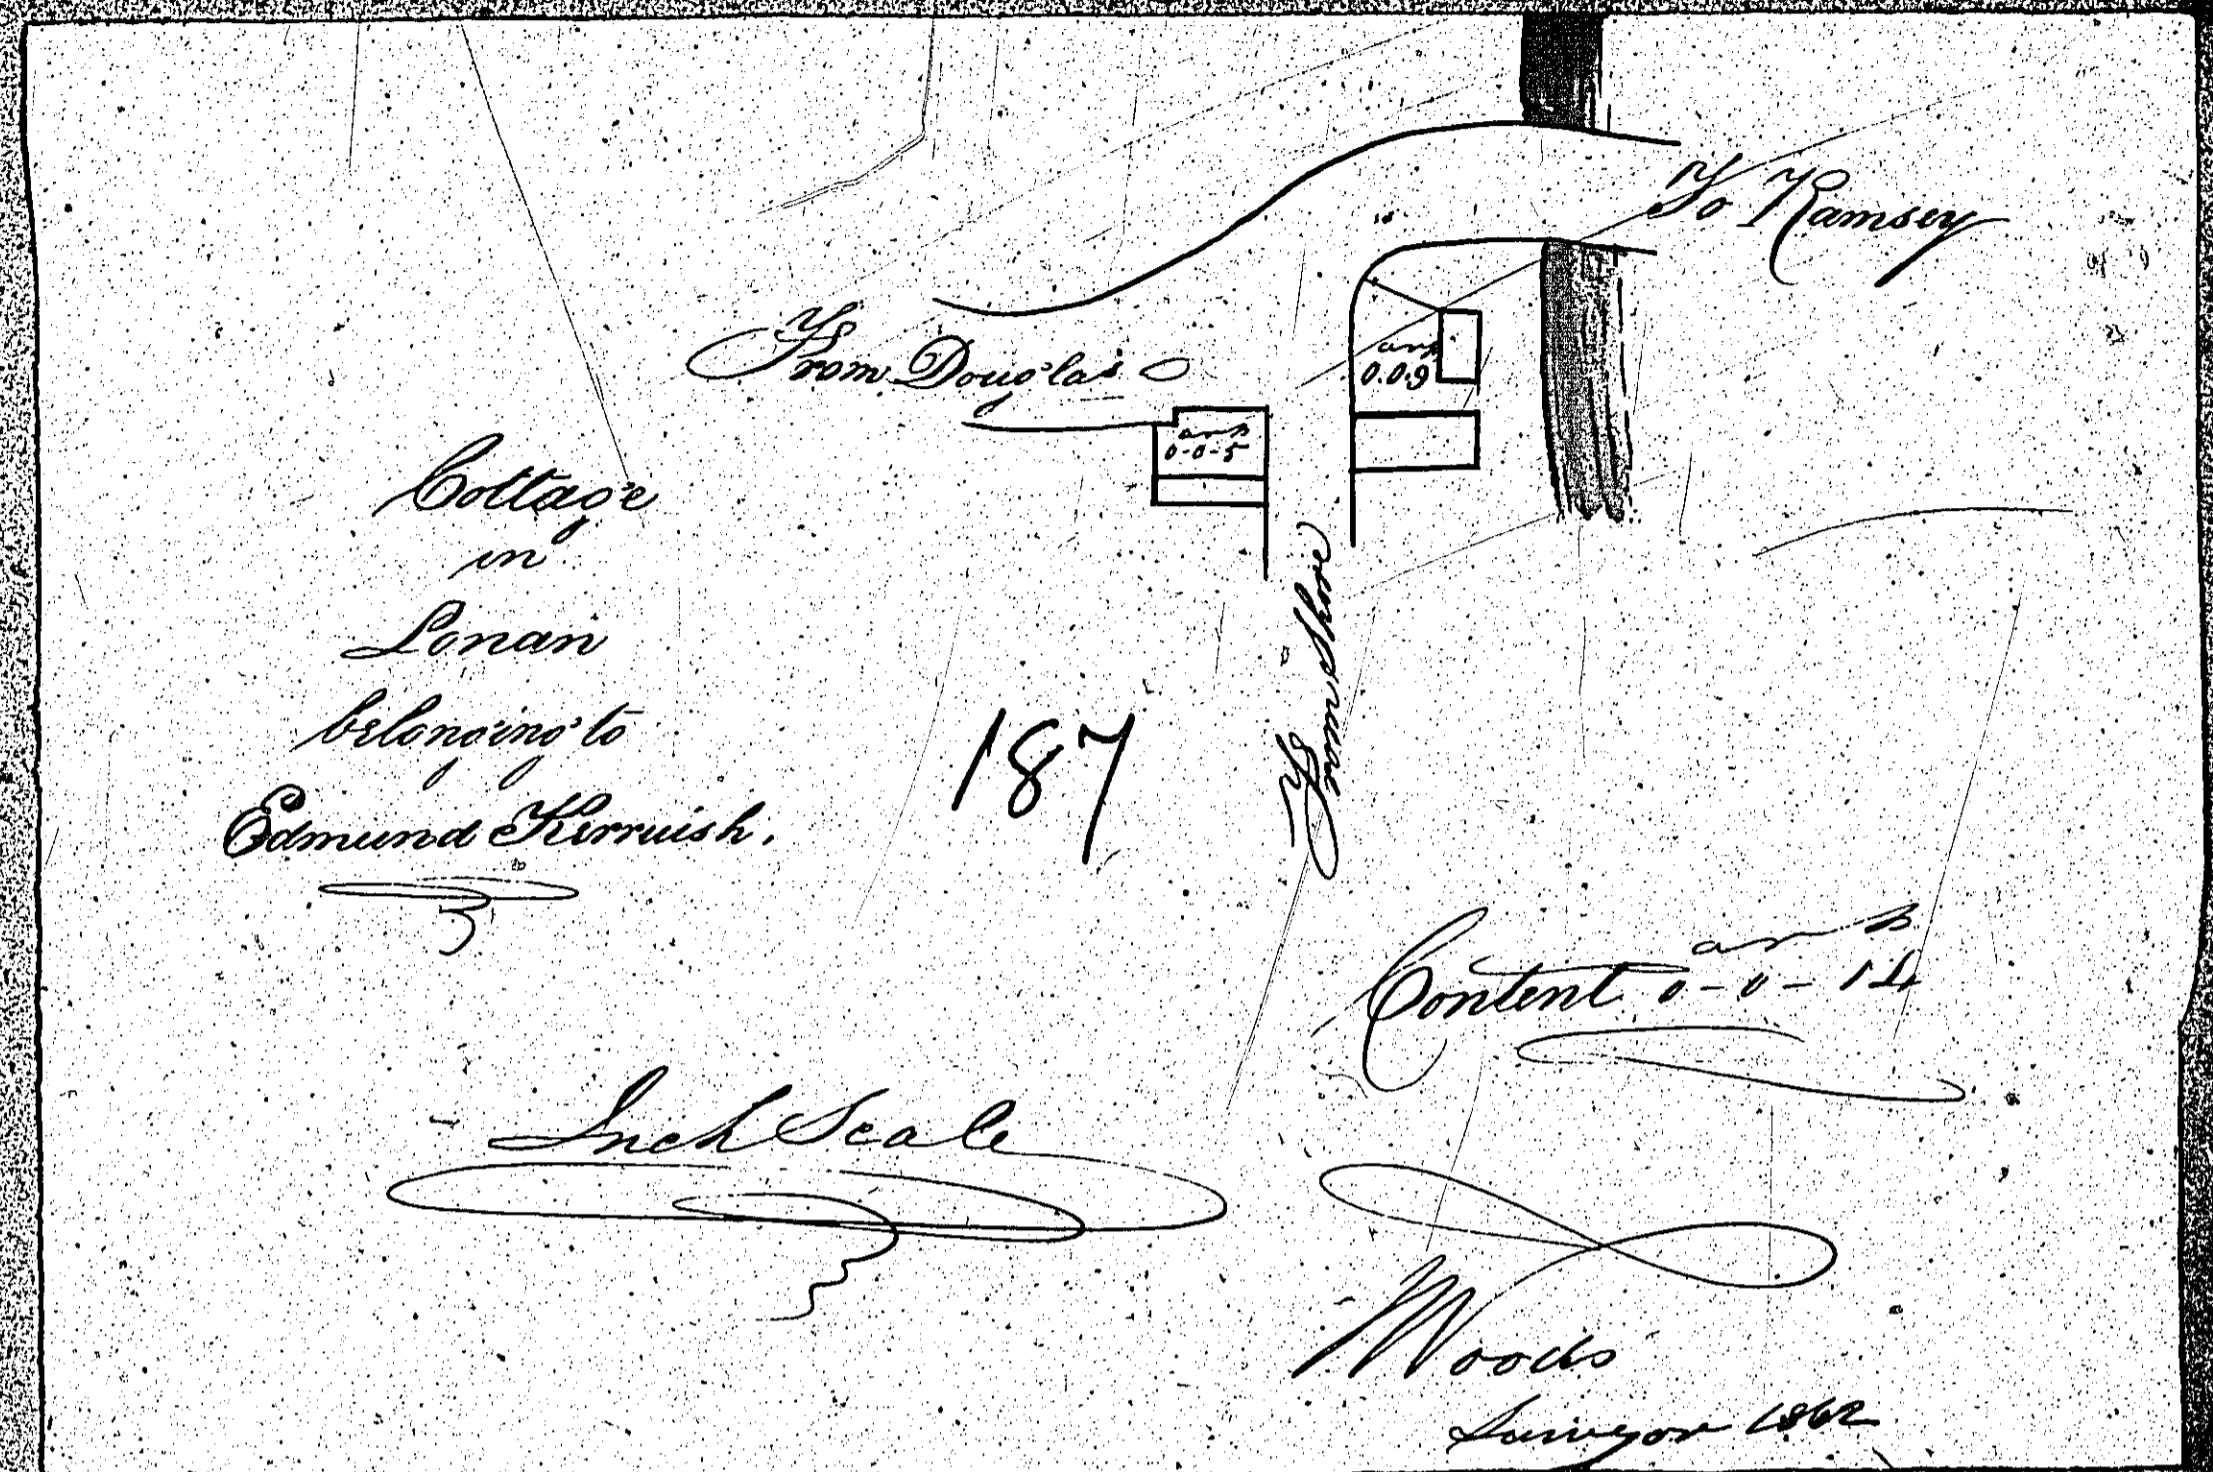 To Ramsey
From Douglas
a r p
0.0.9
a r p
0-0-5
Cottage
in
Lonan
belonging to
Edmund Kerruish.
187
From Shore
a r p
Content 0-0-14
Inch Scale
Woods
Surveyor 1862